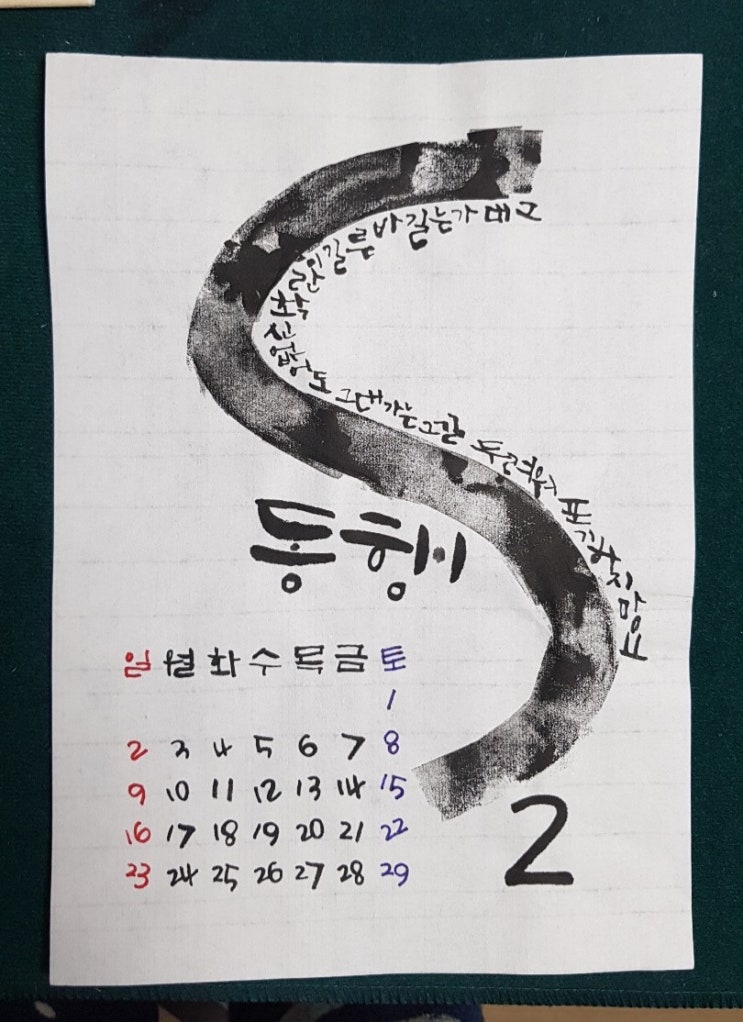 그대 가는길 바른길이란 확신 없어도 그대가는그길 두려워 포기하지
동행
일 월 화 수 목 금 토
1
2 3 4 5 6 7 8
9 10 11 12 13 14 15
16 17 18 19 20 21 22
23 24 25 26 27 28 29
2